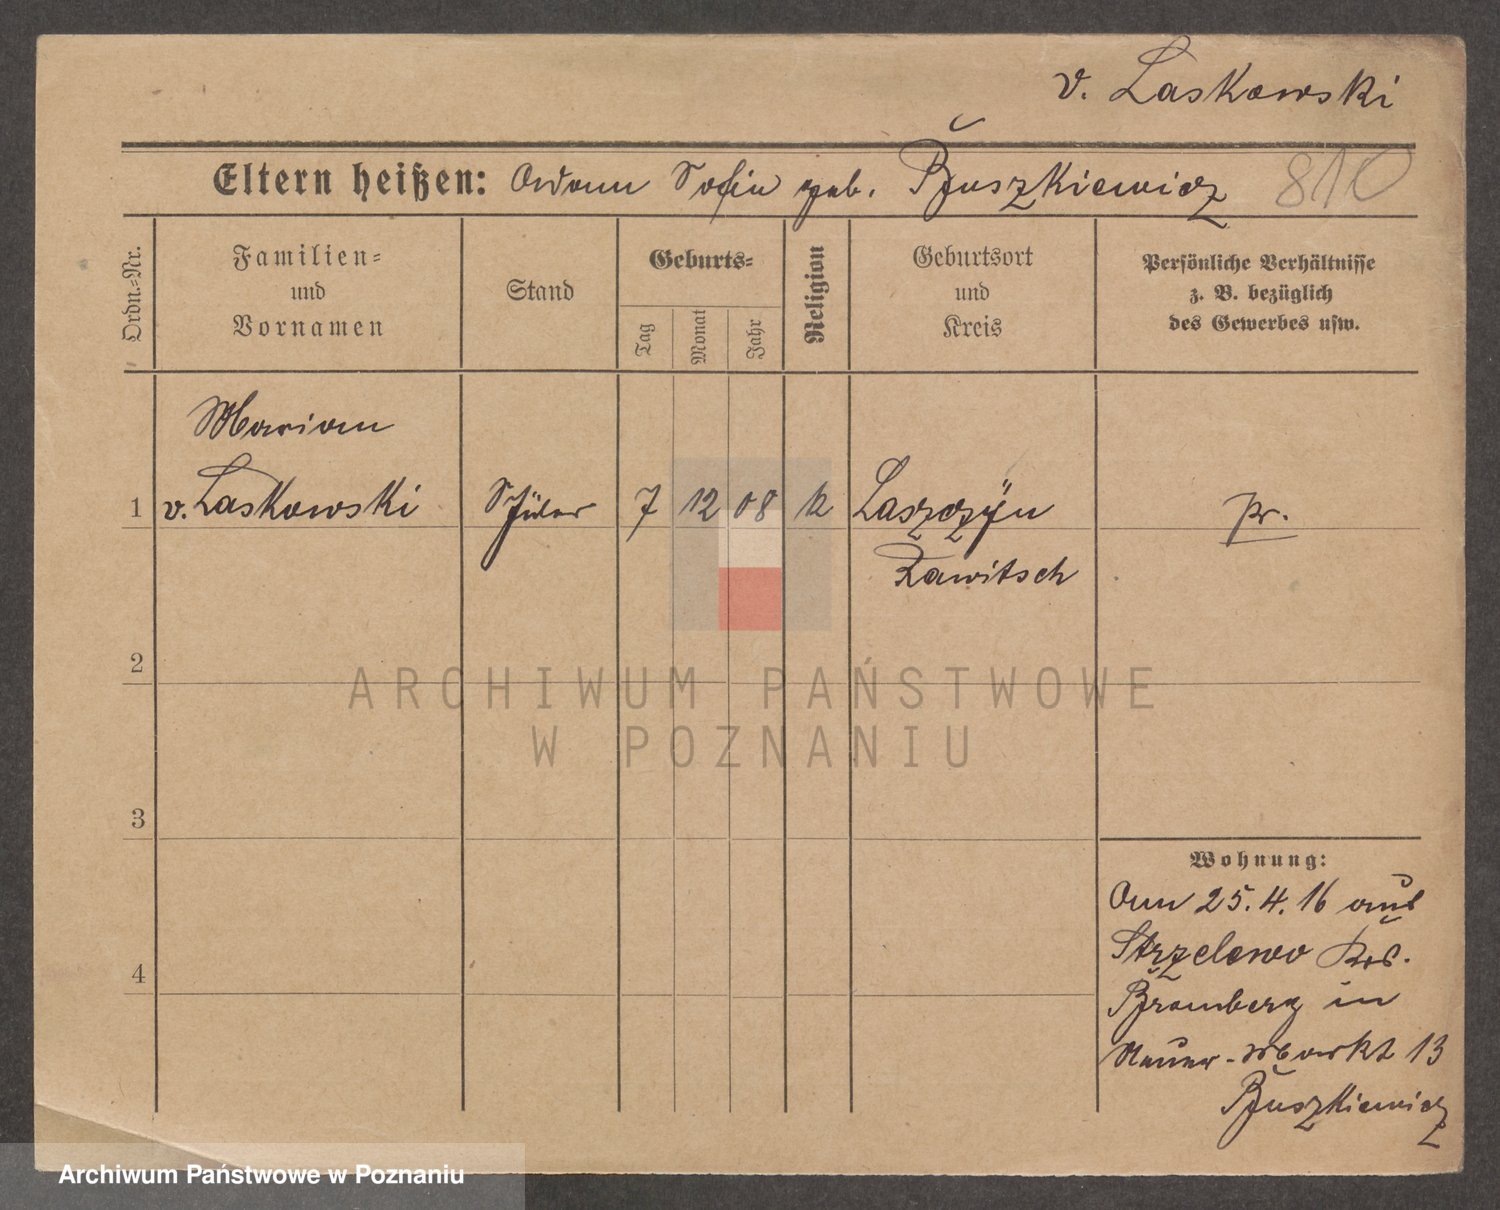 v. Laskowski
Eltern heißen: Adam Sofie geb. Buszkiewicz
810
Ordn.=Nr.
Familien=
und
Vornamen
Stand
Geburts=
Tag
Monat
Jahr
Religion
Geburtsort
und
Kreis
Persönliche Verhältnisse
z. B. bezüglich
des Gewerbes usw.
Marian
1 v. Laskowski Schüler 7 12 08 k Laszczyn pr.
Rawitsch
2
3
4
Wohnung:
Am 25.4.16 aus
Strzelewo Krs.
Bromberg in
Neuer-Markt 13
Buszkiewicz
ARCHIWUM PAŃSTWOWE
W POZNANIU
Archiwum Państwowe w Poznaniu